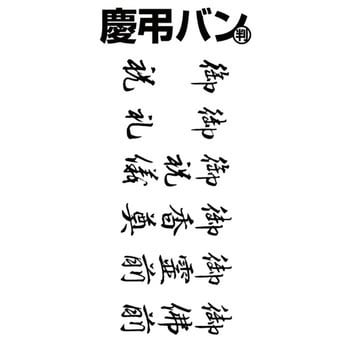 慶弔バン判
御祝
御礼
御祝儀
御香奠
御霊前
御佛前